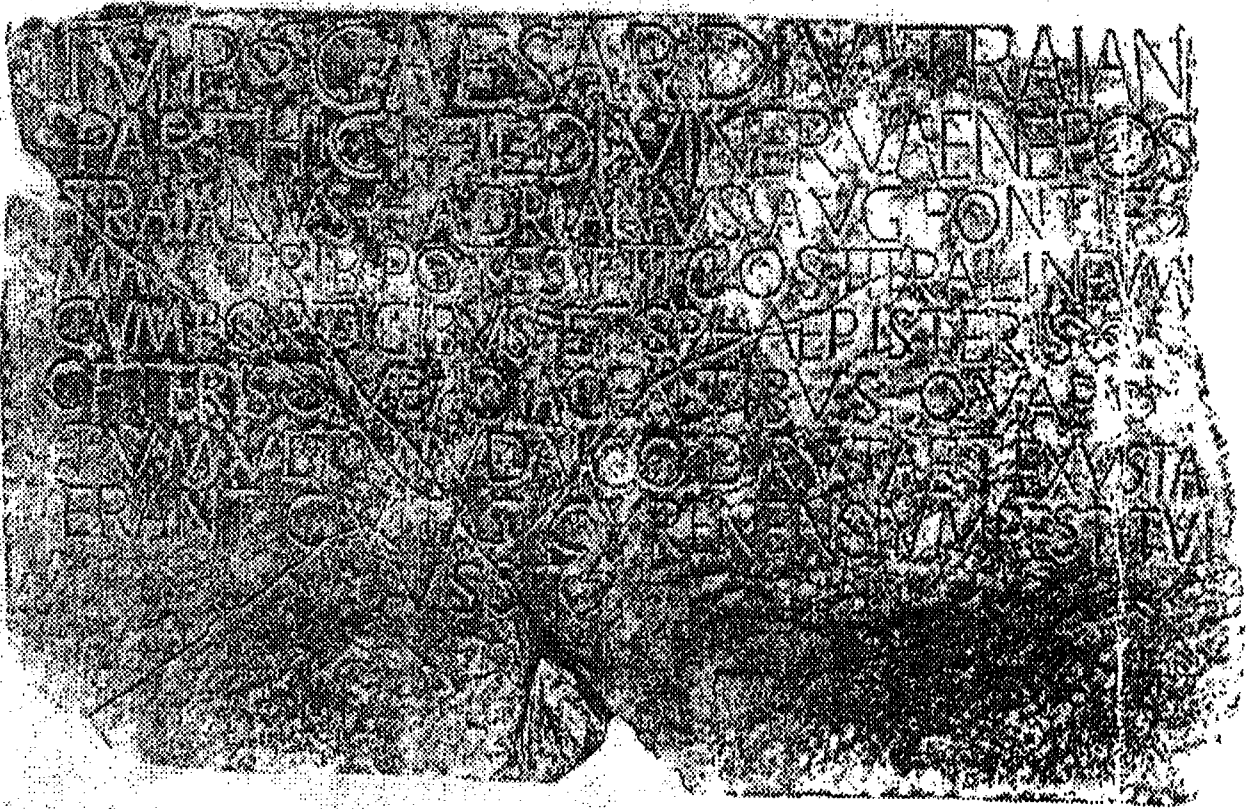 IMP CAESAR DIVI TRAIANI
PARTHICI F DIVI NERVAE NEPOS
TRAIANVS HADRIANVS AVG PONTIF
MAX TRIB POTEST III COS III BALINEVM
CVM PORTICIBVS ET SPHAERISTERIS
CETERISQ ADIACENTIBVS QVAE
TVMVLTV IVDAICO DIRVTA ET EXVSTA
ERANT CIVITATI CYRENENSIVM RESTITVI
IVSSIT